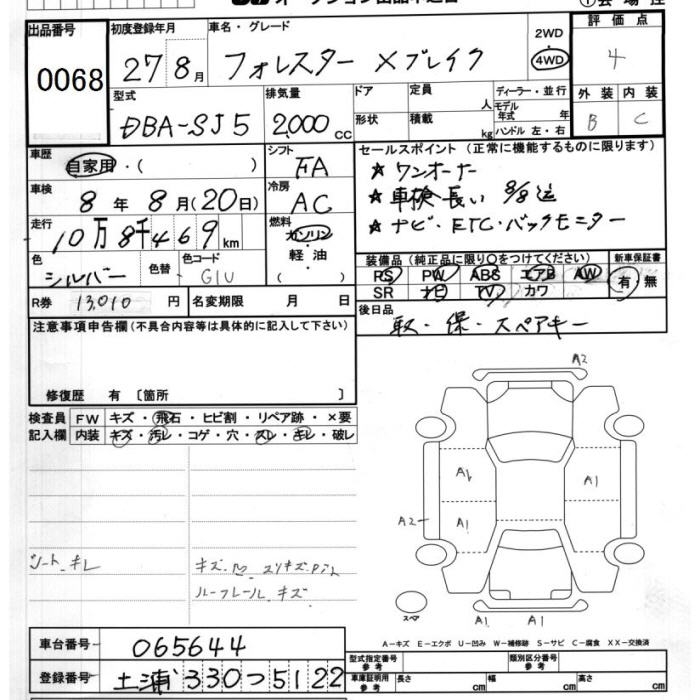 出品番号 初度登録年月 車名・グレード 2WD 評価点
0068 27 8月 フォレスター Xブレイク 4WD 4
型式 排気量 ドア 定員 人 ディーラー・並行 外装 内装
DBA-SJ5 2,000 CC 形状 積載 kg モデル年式 年 ハンドル 左・右 B C
車歴 自家用・( ) シフト FA セールスポイント (正常に機能するものに限ります)
車検 8年 8月(20日) 冷房 AC ★ワンオーナー
★車検長い 8/8迄
走行 10万8千469km 燃料 ガソリン ★ナビ・ETC・バックモニター
軽油 ( )
色 シルバー 色替 色コード G1U 装備品 (純正品に限り○をつけてください) 新車保証書
PS PW ABS エアB AW 有・無
SR ナビ TV カワ
R券 13,010円 名変期限 月 日 後日品
取・保・スペアキー
注意事項申告欄(不具合内容等は具体的に記入して下さい)
修復歴 有 〔箇所 〕
検査員 FW キズ・飛石・ヒビ割・リペア跡・×要
記入欄 内装 キズ・汚レ・コゲ・穴・スレ・キレ・破レ
A2
A1 A1
A2 A1
シート キレ
ルーフレール キズ
スペア A1 A1
A-キズ E-エクボ U-凹み W-補修跡 S-サビ C-腐食 XX-交換済
車台番号 065644 型式指定番号 参考 類別区分番号 参考
登録番号 土浦 330 つ 5122 車庫証明用 参考 長さ cm 幅 cm 高さ cm